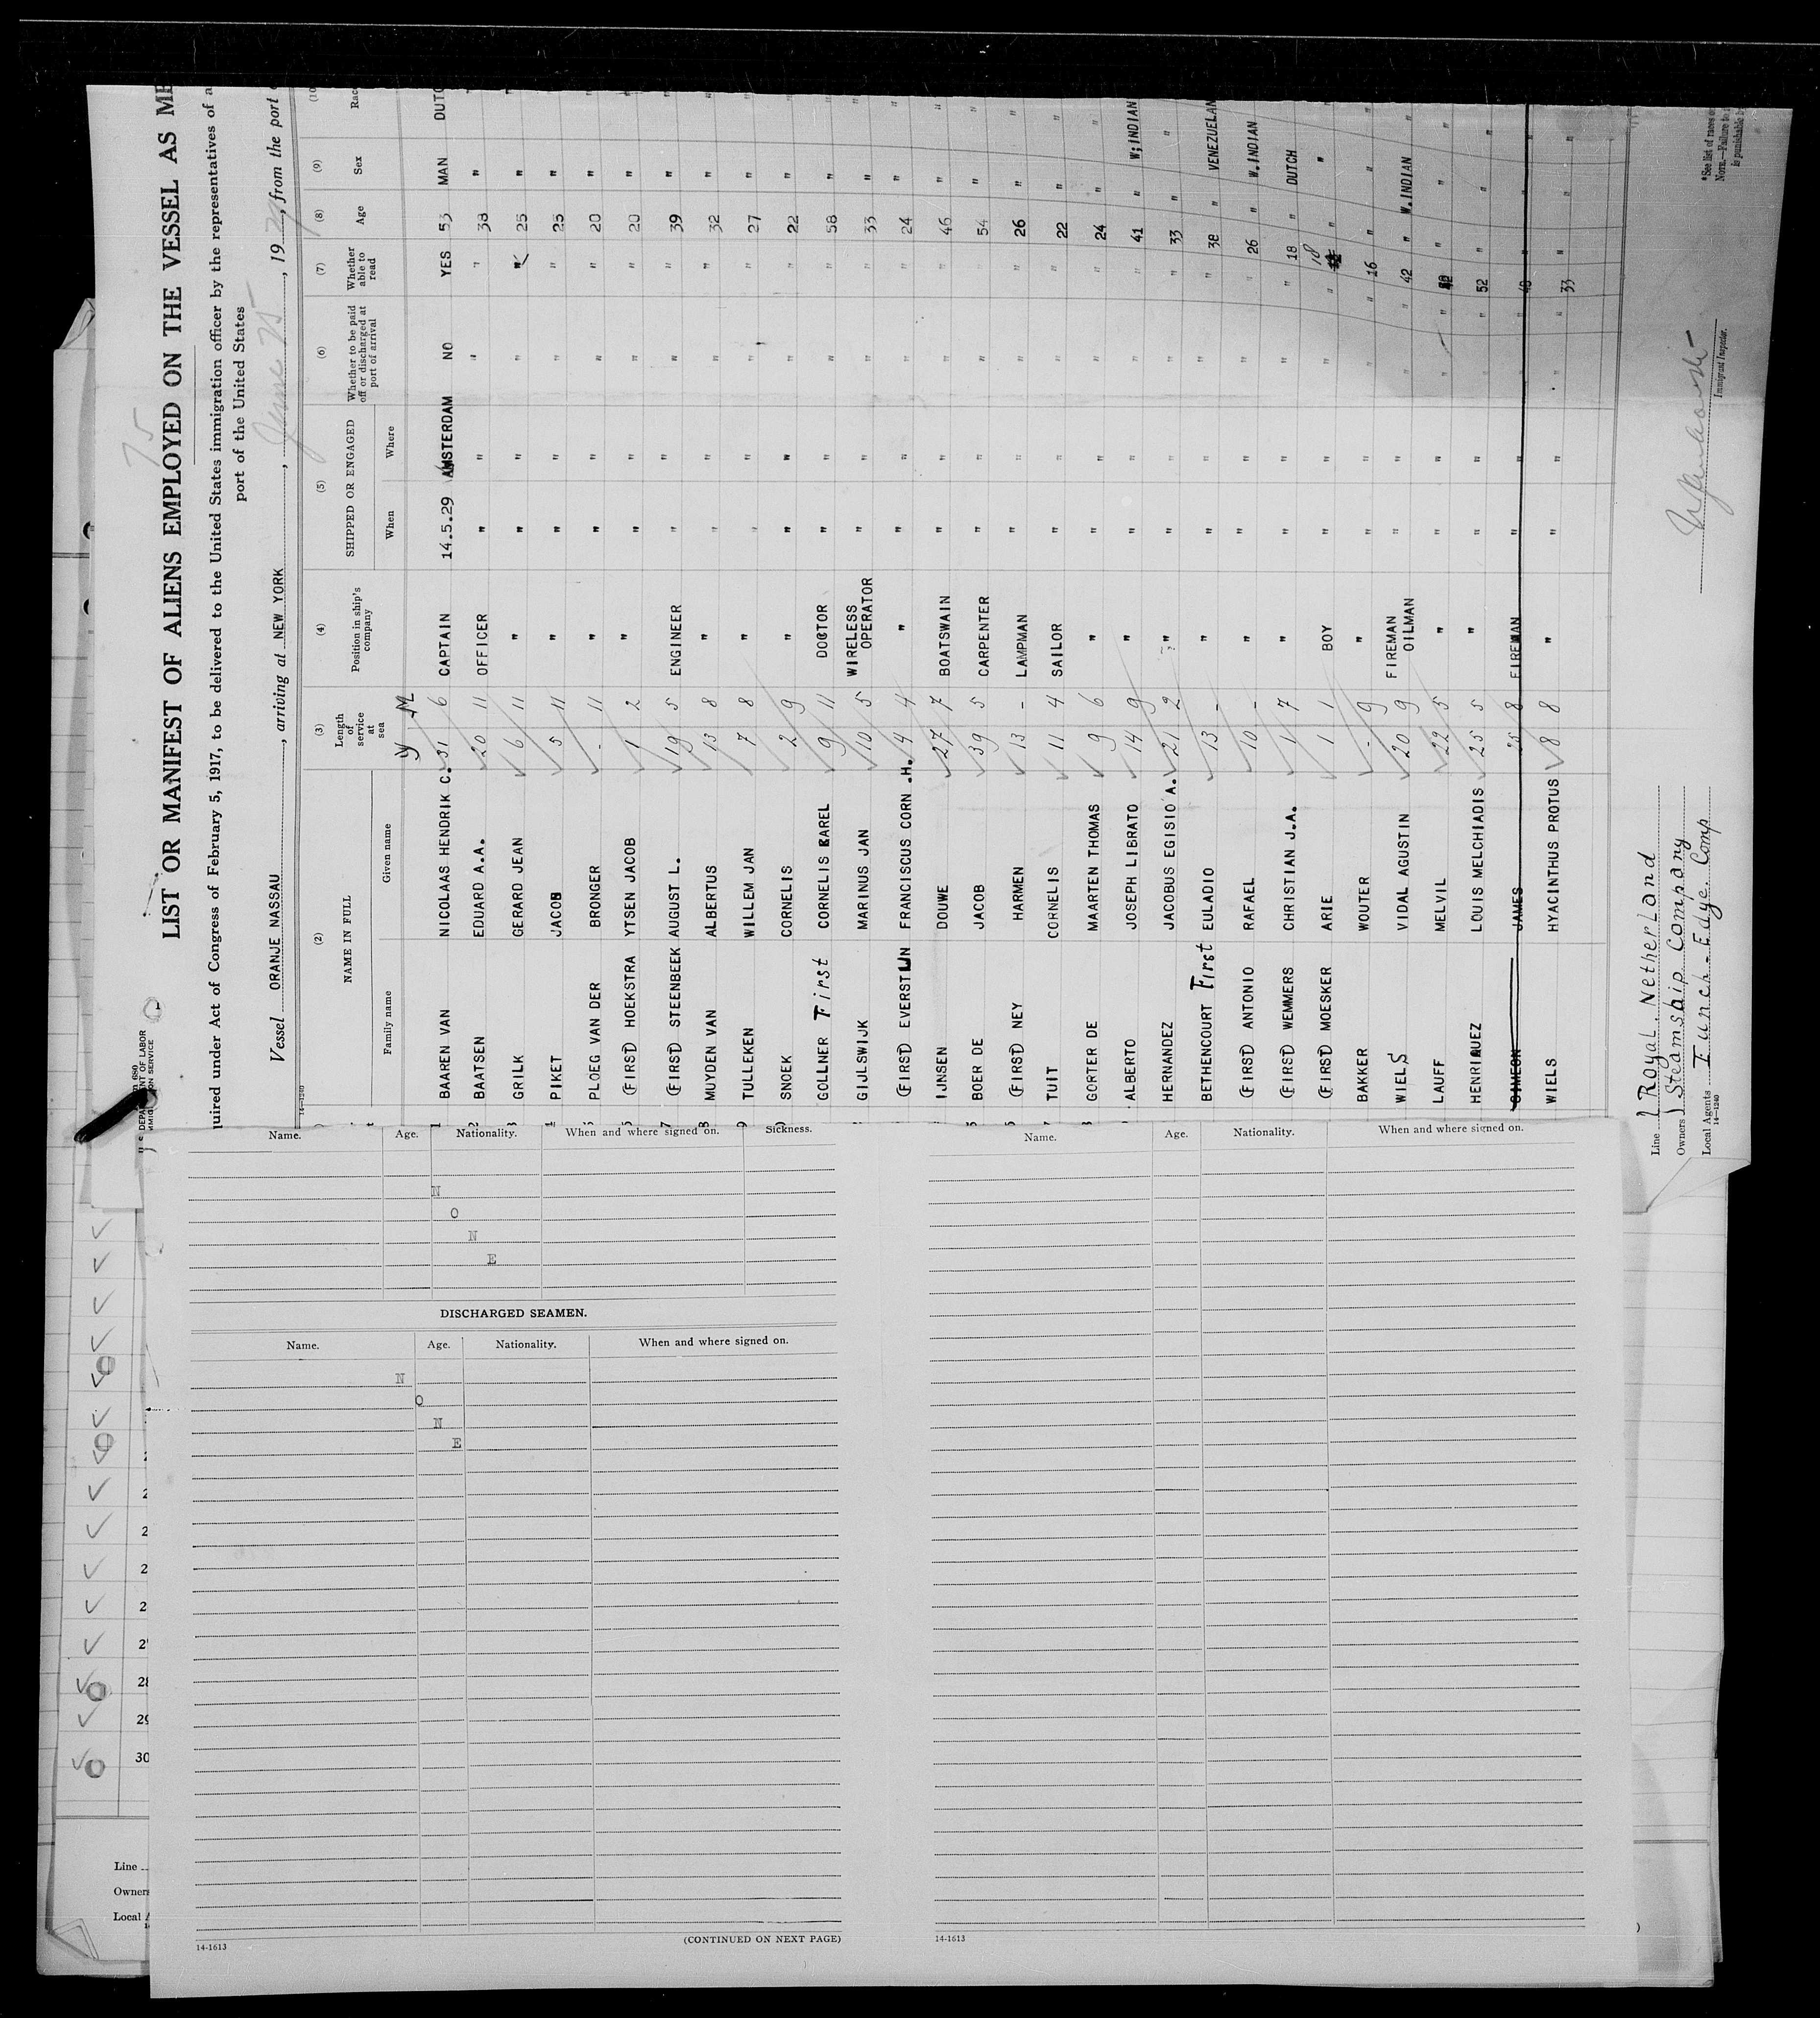 75
LIST OR MANIFEST OF ALIENS EMPLOYED ON THE VESSEL AS ME
quired under Act of Congress of February 5, 1917, to be delivered to the United States immigration officer by the representatives of a
port of the United States
Vessel ORANJE NASSAU, arriving at NEW YORK, June 25, 1929, from the port
(2) (3) (4) (5) (6) (7) (8) (9) (10
NAME IN FULL Length of service at sea Position in ship's company SHIPPED OR ENGAGED Whether to be paid off or discharged at port of arrival Whether able to read Age Sex Rac
Family name Given name When Where
Y M
1 BAAREN VAN NICOLAAS HENDRIK C. 31 6 CAPTAIN 14.5.29 AMSTERDAM NO YES 53 MAN DUTC
2 BAATSEN EDUARD A.A. 20 11 OFFICER " " " " 38 " "
3 GRILK GERARD JEAN 6 11 " " " " " 25 " "
4 PIKET JACOB 5 11 " " " " " 25 " "
5 PLOEG VAN DER BRONGER - 11 " " " " " 20 " "
(FIRST) HOEKSTRA YTSEN JACOB 1 2 " " " " " 20 " "
7 (FIRST) STEENBEEK AUGUST L. 19 5 ENGINEER " " " " 39 " "
8 MUYDEN VAN ALBERTUS 13 8 " " " " " 32 " "
9 TULLEKEN WILLEM JAN 7 8 " " " " " 27 " "
SNOEK CORNELIS 2 9 " " " " " 22 " "
GOLLNER First CORNELIS KAREL 9 11 DOCTOR " " " " 58 " "
GIJLSWIJK MARINUS JAN 10 5 WIRELESS OPERATOR " " " " 33 " "
(FIRST) EVERSTIJN FRANCISCUS CORN .H. 4 4 " " " " " 24 " "
IJNSEN DOUWE 27 7 BOATSWAIN " " " " 46 " "
BOER DE JACOB 39 5 CARPENTER " " " " 54 " "
(FIRST) NEY HARMEN 13 - LAMPMAN " " " " 26 " "
TUIT CORNELIS 11 4 SAILOR " " " " 22 " "
GORTER DE MAARTEN THOMAS 9 6 " " " " " 24 " "
ALBERTO JOSEPH LIBRATO 14 9 " " " " " 41 " W;INDIAN
HERNANDEZ JACOBUS EGISIO A. 21 2 " " " " " 33 " "
BETHENCOURT First EULADIO 13 - " " " " " 38 " VENEZUELAN
(FIRST) ANTONIO RAFAEL 10 - " " " " " 26 " W.INDIAN
(FIRST) WEMMERS CHRISTIAN J.A. 1 7 " " " " " 18 " DUTCH
(FIRST) MOESKER ARIE 1 1 BOY " " " " 18 " "
BAKKER WOUTER - 9 " " " " " 16 " "
WIELS VIDAL AGUSTIN 20 9 FIREMAN OILMAN " " " " 42 " W.INDIAN
LAUFF MELVIL 22 5 " " " " " " "
HENRIQUEZ LOUIS MELCHIADIS 25 5 " " " " " 52 " "
SIMEON JAMES 25 8 FIREMAN " " " " 48 " "
WIELS HYACINTHUS PROTUS 8 8 " " " " " 33 " "
Line Royal. Netherland
Owners Steamship Company
Local Agents Funch-Edye. Comp
14-1240
Immigrant Inspector.
*See list of races
NOTE.—Failure to
is punishable
Name. Age. Nationality. When and where signed on. Sickness.
N
O
N
E
DISCHARGED SEAMEN.
Name. Age. Nationality. When and where signed on.
N
O
N
E
14-1613 (CONTINUED ON NEXT PAGE)
Name. Age. Nationality. When and where signed on.
14-1613
28
29
30
Line
Owners
Local A